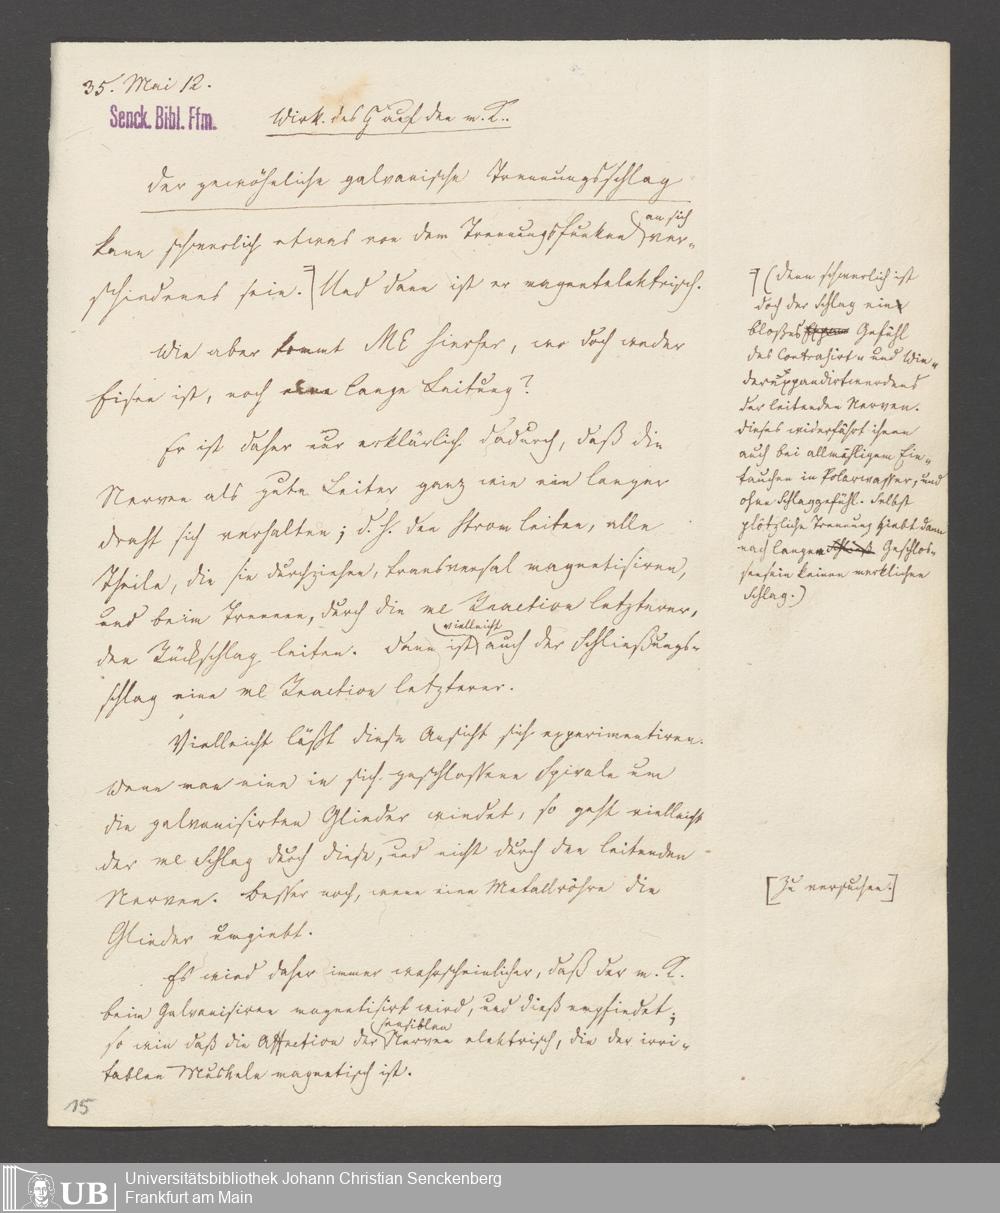 35. Mai 12.
Senck. Bibl. Ffm.
Wirk. des G auf den m. K..
Der gewöhnliche galvanische Trennungsschlag
kann schwerlich etwas von dem Trennungsfunken an sich ver-
schiedenes sein. Und dann ist er magnetelektrisch.
Wie aber kommt ME hierher, wo doch weder
Eisen ist, noch eine lange Leitung?
Er ist daher nur erklärlich dadurch, daß die
Nerven als gute Leiter ganz wie ein langer
Draht sich verhalten; d. h. den Strom leiten, alle
Theile, die sie durchziehen, transversal magnetisiren,
und beim Trennen, durch die me Reaction letzterer,
den Rückschlag leiten. Dann ist vielleicht auch der Schließungs-
schlag eine me Reaction letzterer.
Vielleicht läßt diese Ansicht sich experimentiren.
Wenn man eine in sich geschlossene Spirale um
die galvanisirten Glieder windet, so geht vielleicht
der me Schlag durch diese, und nicht durch die leitenden
Nerven. Besser noch, wenn eine Metallröhre die
Glieder umgiebt.
Es wird daher immer wahrscheinlicher, daß der m. K.
beim Galvanisiren magnetisirt wird, und dieß empfindet;
so wie daß die Affection der sensiblen Nerven elektrisch, die der irri-
tablen Muskeln magnetisch ist.
(denn schwerlich ist
doch der Schlag ein
bloßes Gefühl
des Contrahirt- und Wie-
derexpandirtwerdens
der leitenden Nerven.
Dieses widerfährt ihnen
auch bei allmähligem Ein-
tauchen in Polarwasser, und
ohne Schlaggefühl. Selbst
plötzliche Trennung giebt dann
nach langem Geschlos-
sensein keinen merklichen
Schlag.)
[Zu versuchen.]
15
UB
Universitätsbibliothek Johann Christian Senckenberg
Frankfurt am Main